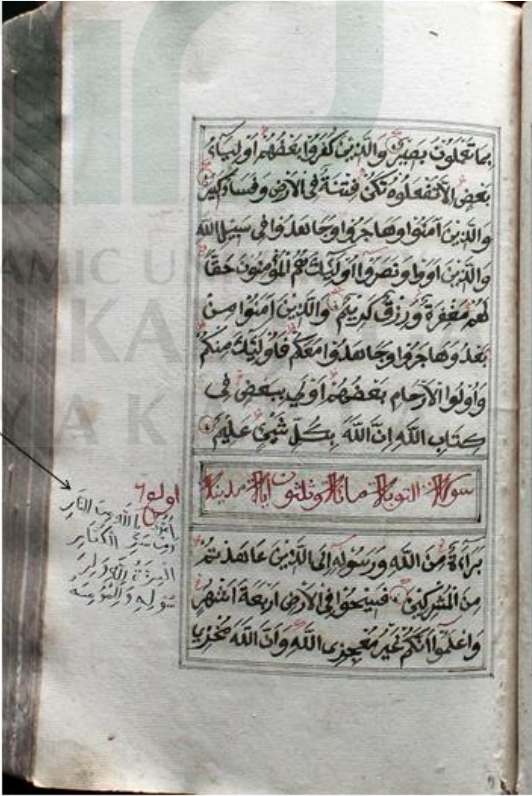 بما تعملون بصير والذين كفروا بعضهم اولياء
بعض الا تفعلوه تكن فتنة فى الارض وفساد كبير
والذين امنوا وهاجروا وجاهدوا فى سبيل الله
والذين اووا ونصروا اوليك هم المؤمنون حقا
لهم مغفرة ورزق كريم والذين امنوا من
بعد وهاجروا وجاهدوا معكم فاوليك منكم
واولوا الارحام بعضهم اولي ببعض فى
كتاب الله ان الله بكل شيئ عليم
سورة التوبة مائة وثلثون اية مدينة
براءة من الله ورسوله الى الذين عاهدتم
من المشركين فسيحوا فى الارض اربعة اشهر
واعلموا انكم غير معجزى الله وان الله مخزى
اعوذ بالله من النار
ومن شر الكفار
العزة لله ولر
سوله وللمؤمنين
AMIC U
KA
YAK